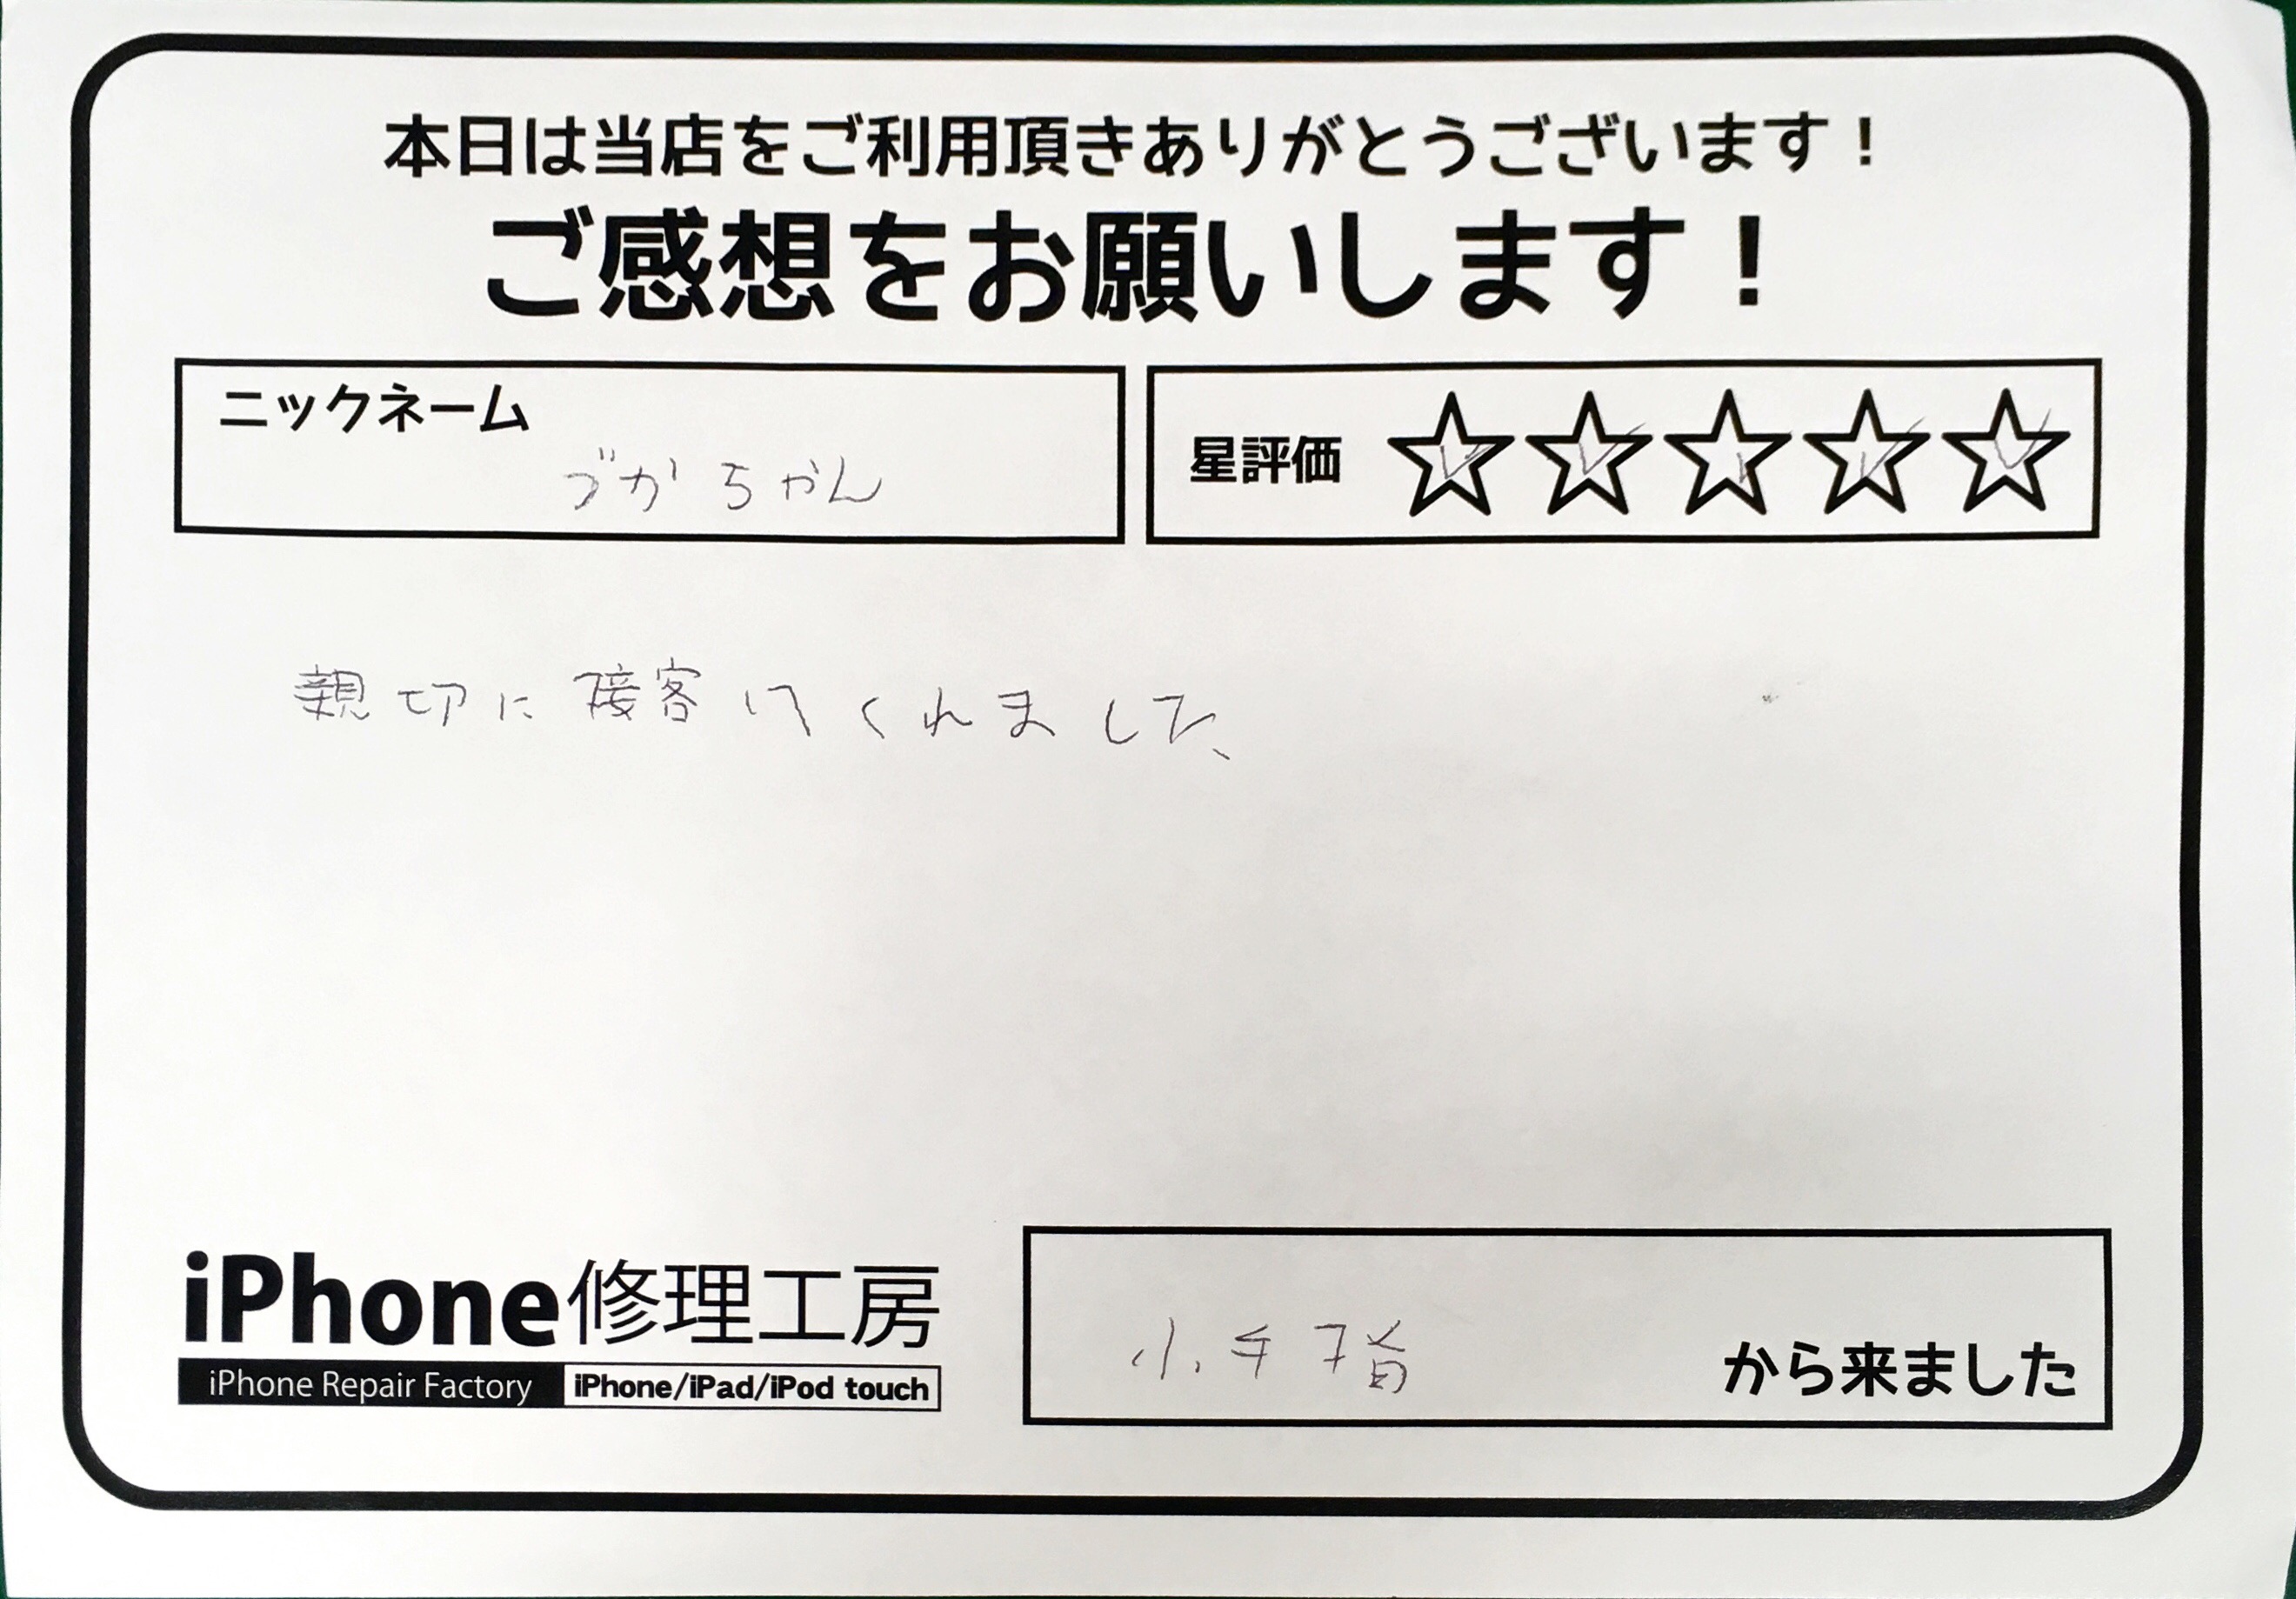 本日は当店をご利用頂きありがとうございます！
ご感想をお願いします！
ニックネーム
づかちゃん
星評価 ☆☆☆☆☆
親切に接客してくれました、
iPhone修理工房
iPhone Repair Factory iPhone/iPad/iPod touch
小手指 から来ました